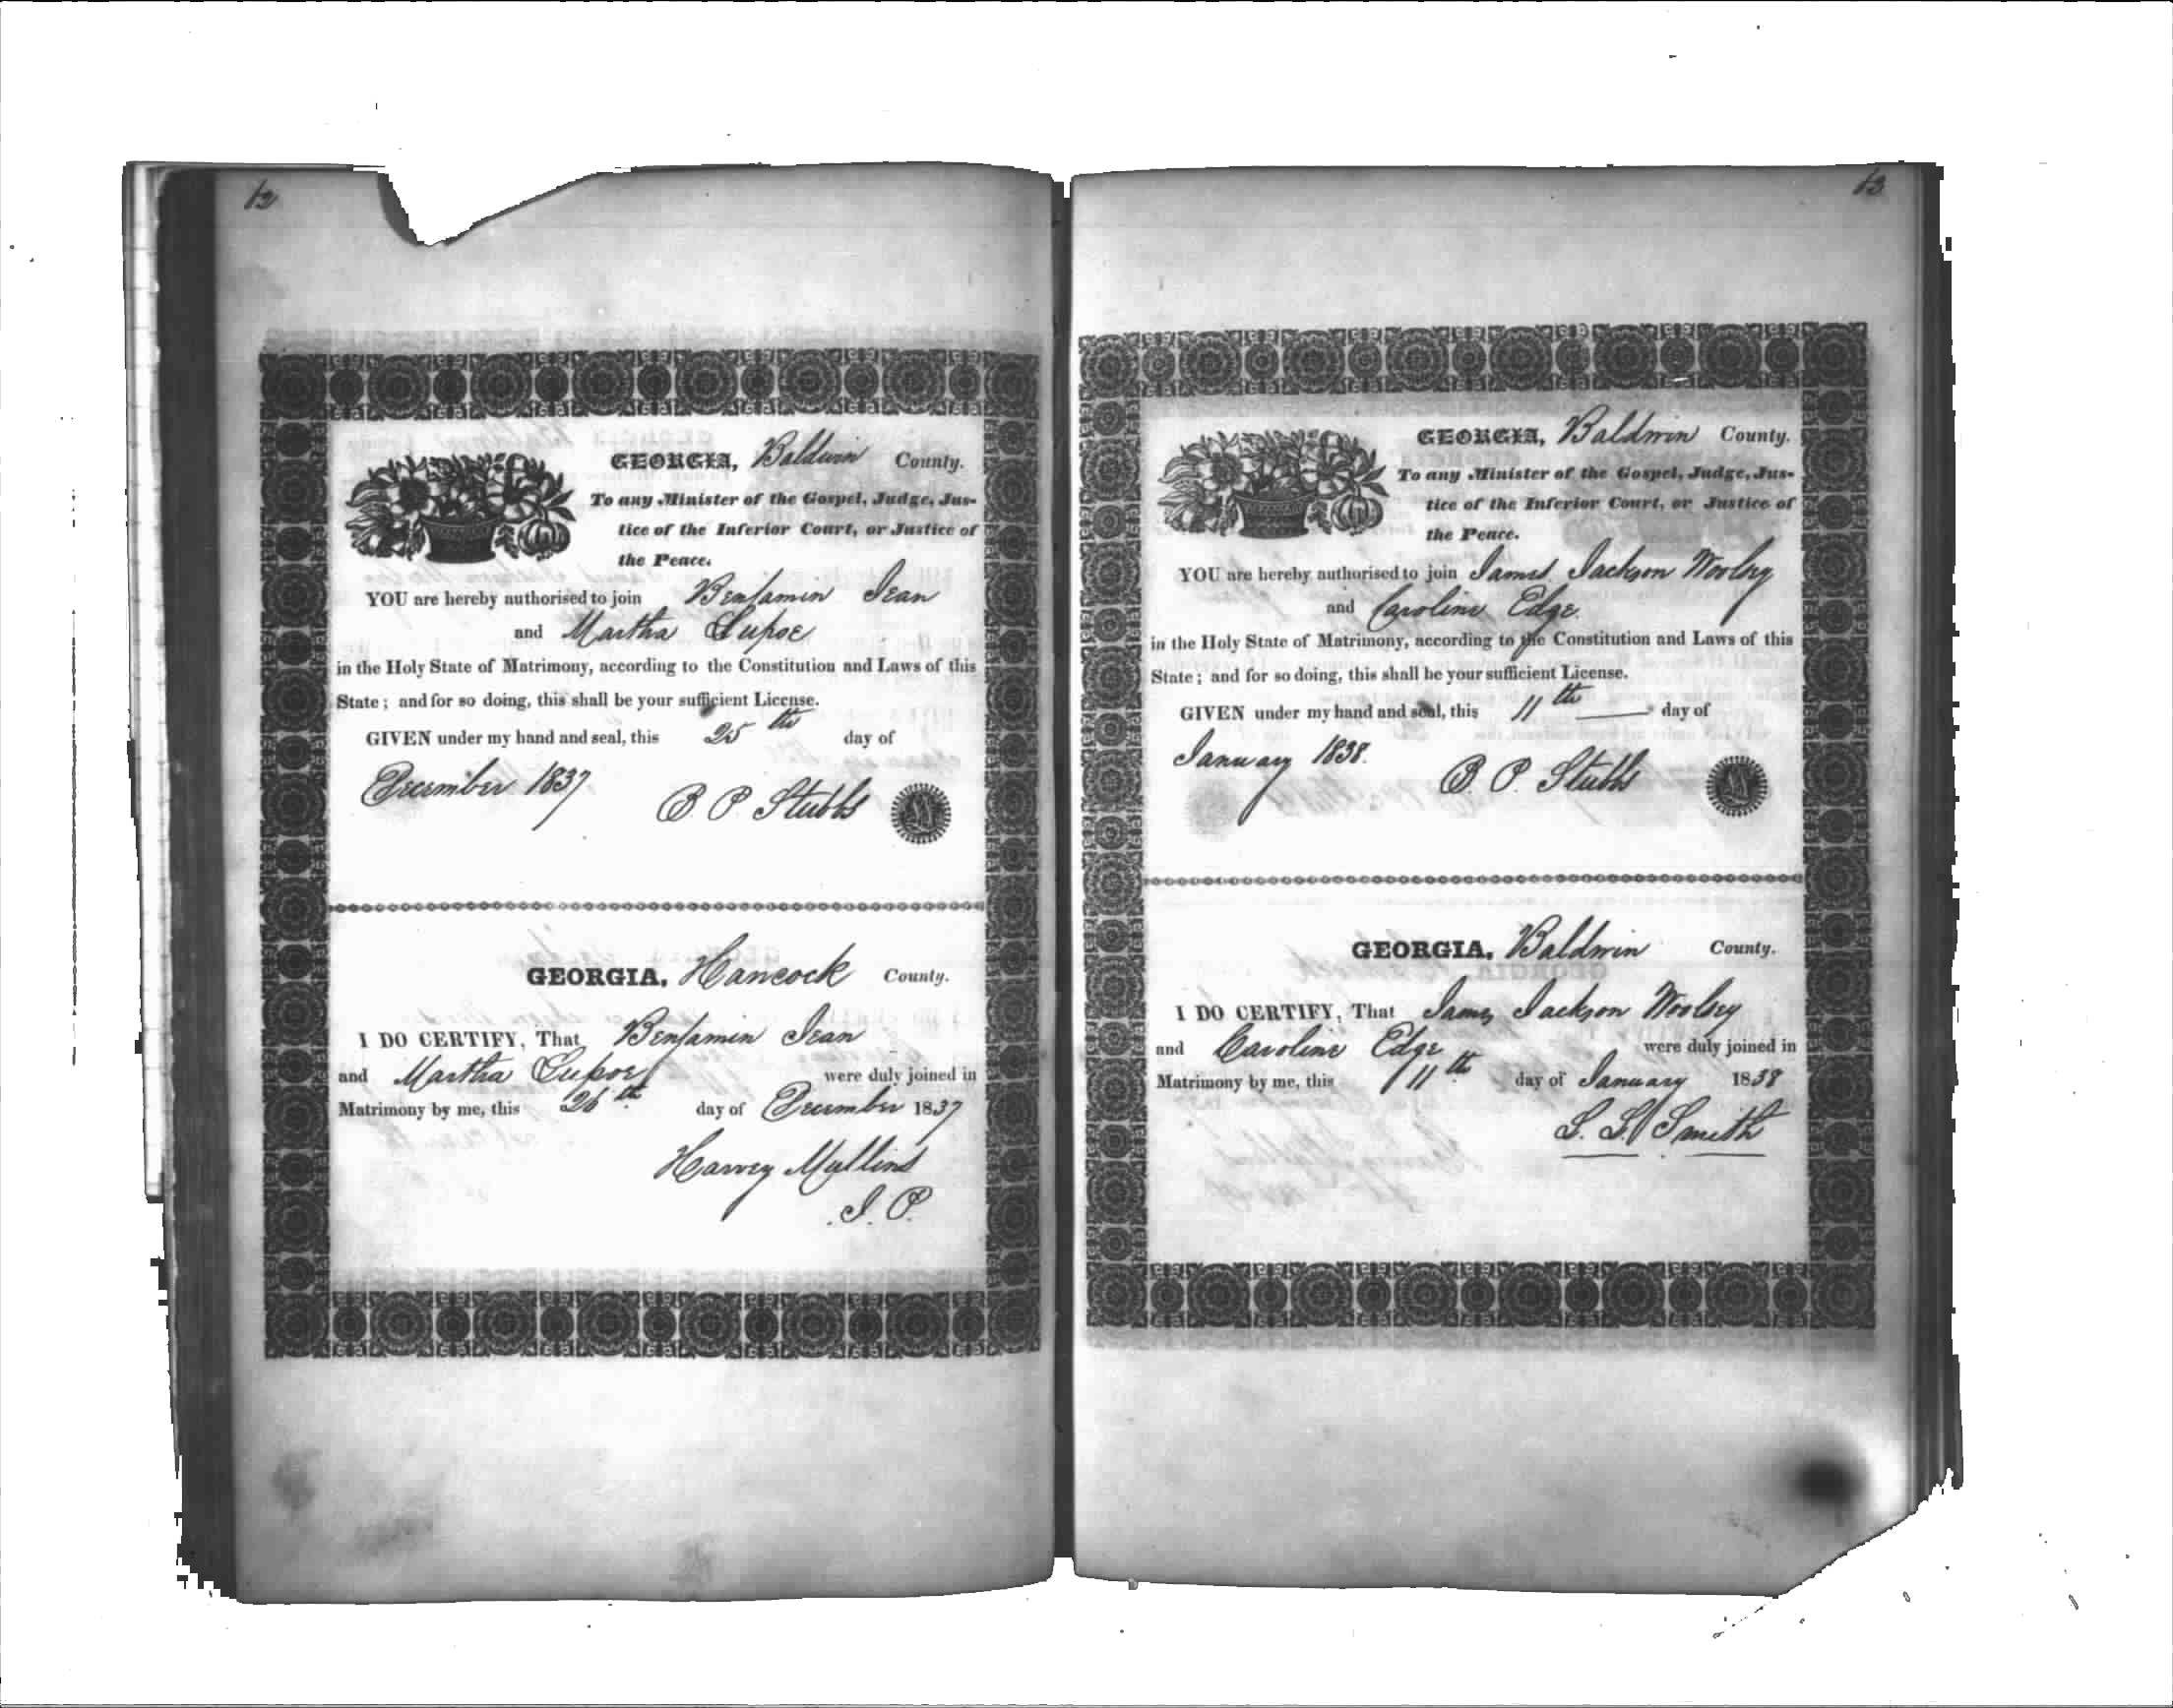 12
GEORGIA, Baldwin County.
To any Minister of the Gospel, Judge, Jus-
tice of the Inferior Court, or Justice of
the Peace.
YOU are hereby authorised to join Benjamin Jean
and Martha Lupoe
in the Holy State of Matrimony, according to the Constitution and Laws of this
State; and for so doing, this shall be your sufficient License.
GIVEN under my hand and seal, this 25th day of
December 1837
B. P. Stubbs
GEORGIA, Hancock County.
I DO CERTIFY, That Benjamin Jean
and Martha Lupoe were duly joined in
Matrimony by me, this 26th day of December 1837
Harvey Mullins
J. P.
13
GEORGIA, Baldwin County.
To any Minister of the Gospel, Judge, Jus-
tice of the Inferior Court, or Justice of
the Peace.
YOU are hereby authorised to join James Jackson Woolsey
and Caroline Edge
in the Holy State of Matrimony, according to the Constitution and Laws of this
State; and for so doing, this shall be your sufficient License.
GIVEN under my hand and seal, this 11th day of
January 1838.
B. P. Stubbs
GEORGIA, Baldwin County.
I DO CERTIFY, That James Jackson Woolsey
and Caroline Edge were duly joined in
Matrimony by me, this 11th day of January 1838
Smith